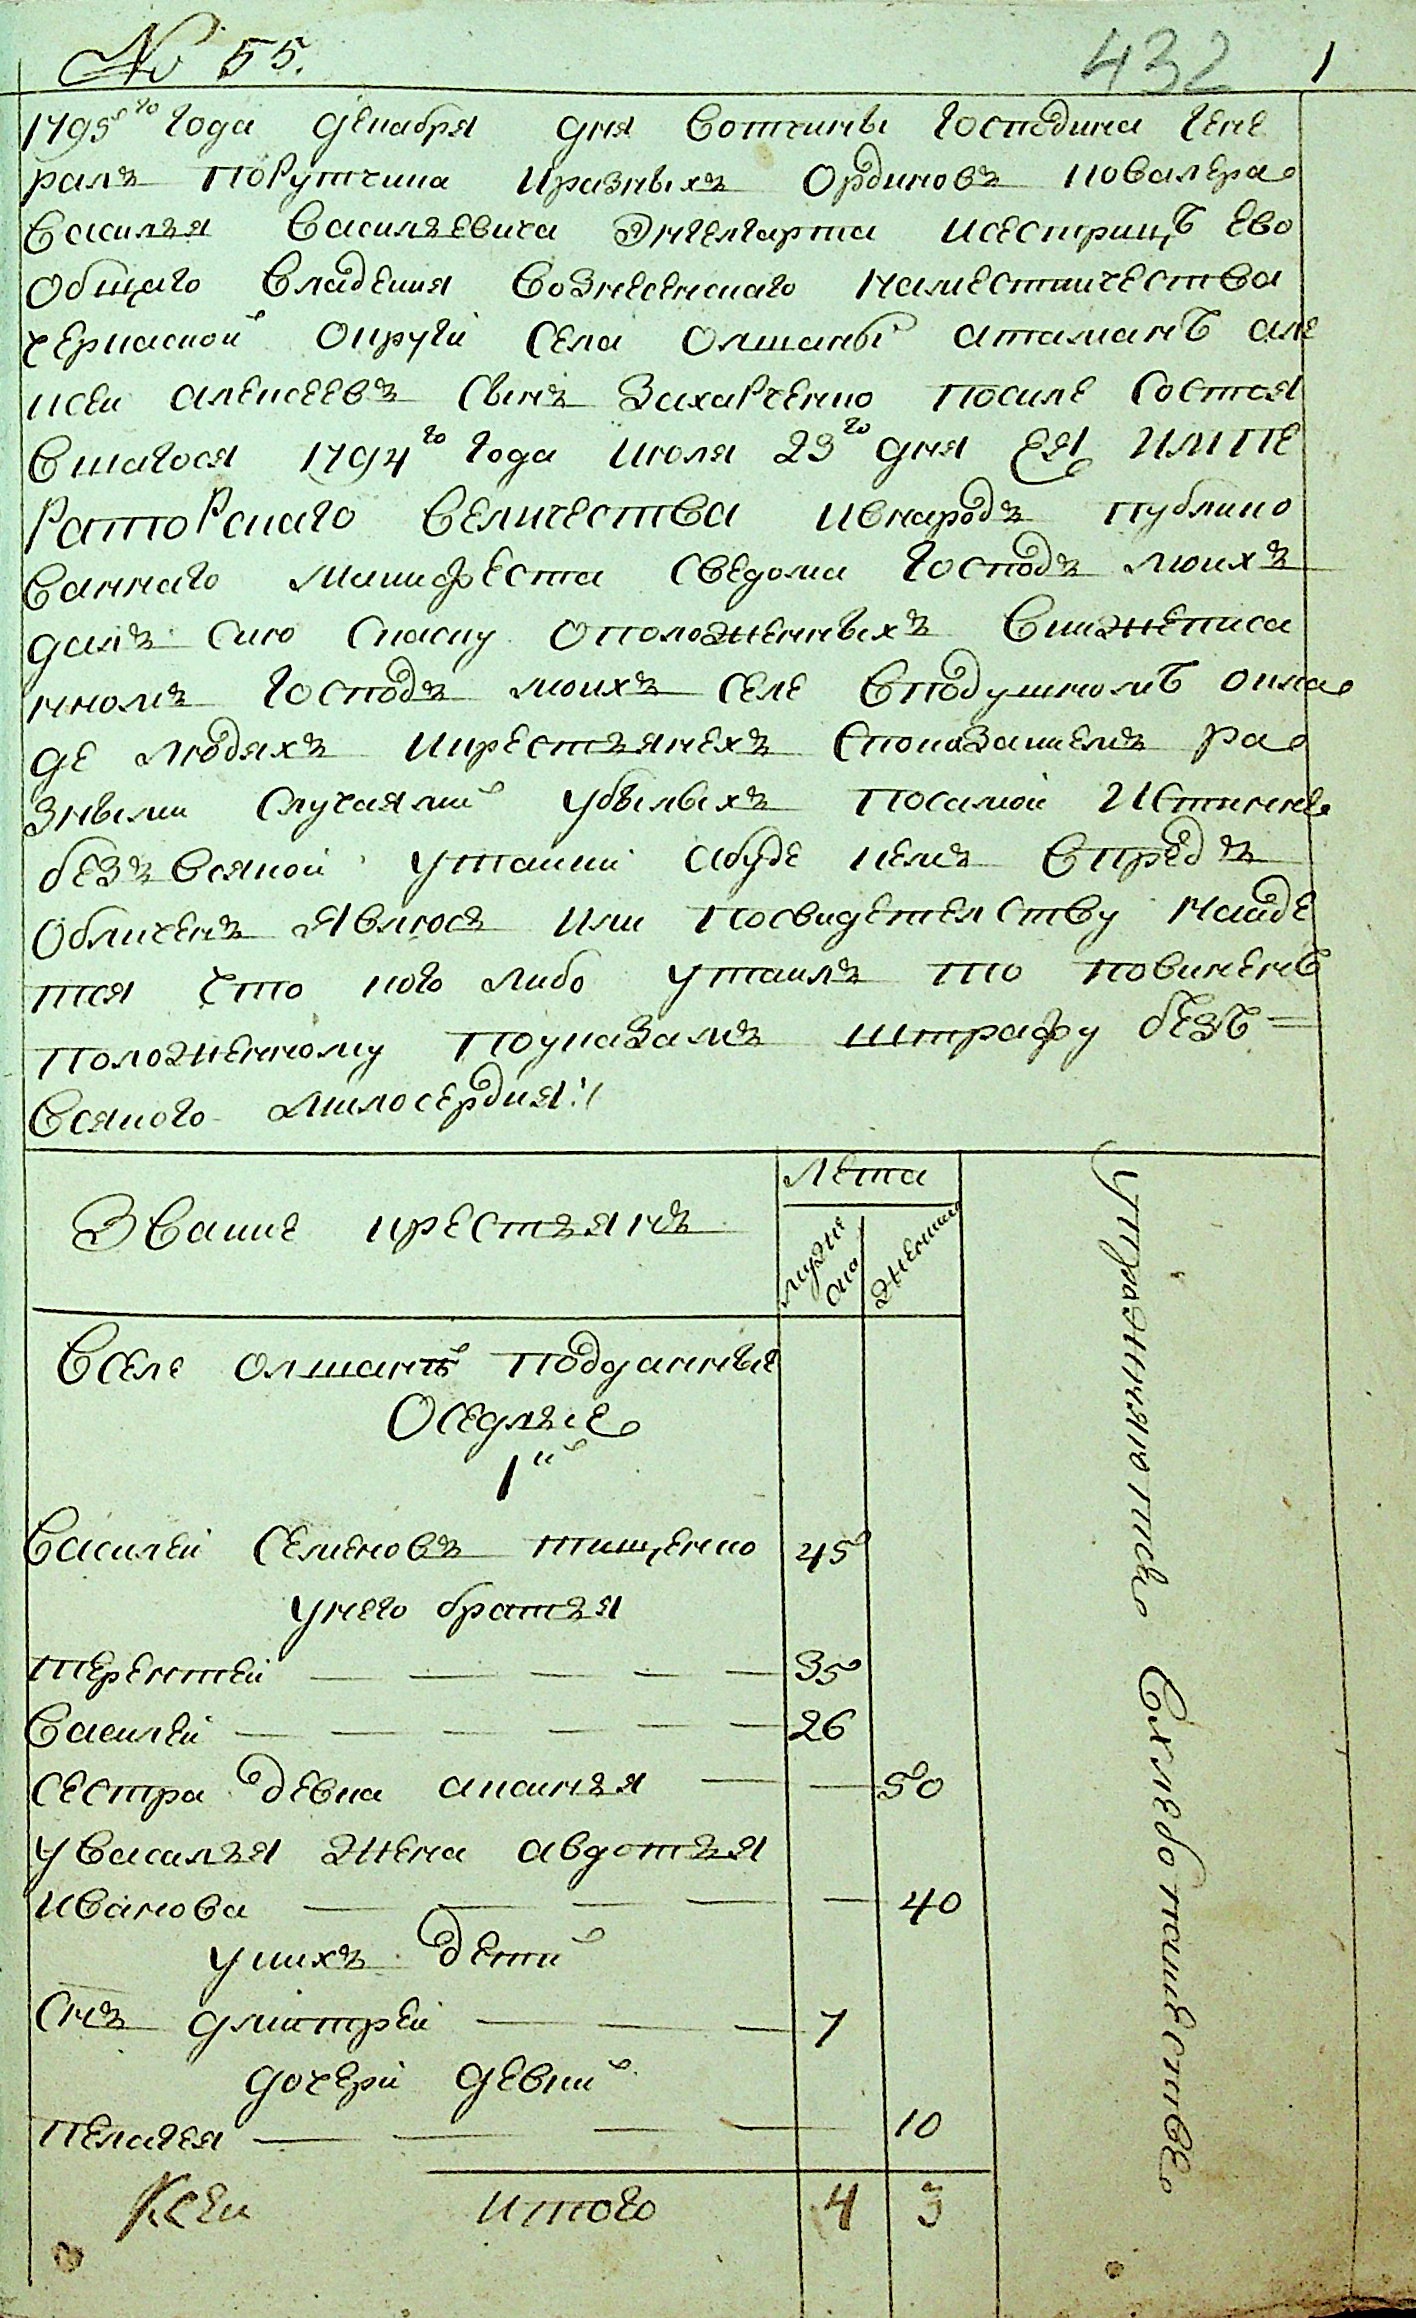 № 55.
432 1
1795го года декабря дня вотчины господина гене
ралъ порутчика иразныхъ ординовъ ковалера
василъя василъевича Энгелгарта исестрицъ ево
общаго владения вознесенскаго наместничества
черкаской округи села олшаны атаманъ але
ксей алексеевъ сынъ Захарченко посиле состоя
вшагося 1794го года июля 23го дня ея импе
раторскаго величества ивнародъ публико
ваннаго манифеста сведома господъ моихъ
далъ сию скаску ополо женныхъ ввишеписа
нномъ господъ моихъ селе вподушномъ окла
де людяхъ икрестъянехъ споказаниемъ ра
зными случаями убылыхъ посамой истинне
безъ всякой утаики абуде кемъ впредъ
обличенъ явлюсъ или посвидетелству найде
тся что кого либо утаилъ то повиненъ
положенному поуказамъ штрафу безъ
всякого милосердия
Звание крестъянъ
Лета
муже
ско
женско
вселе олшаны подданные
Оседлые
1й
василей семеновъ тищенко 45
унего братъя
терентей 35
василей 26
сестра девка 50
увасилъя жена авдотъя
иванова 40
унихъ дети
снъ дмитрей 7
дочери девки
пелагея 10
итого 4 3
упражняются вхлебопашестве
Ксеи